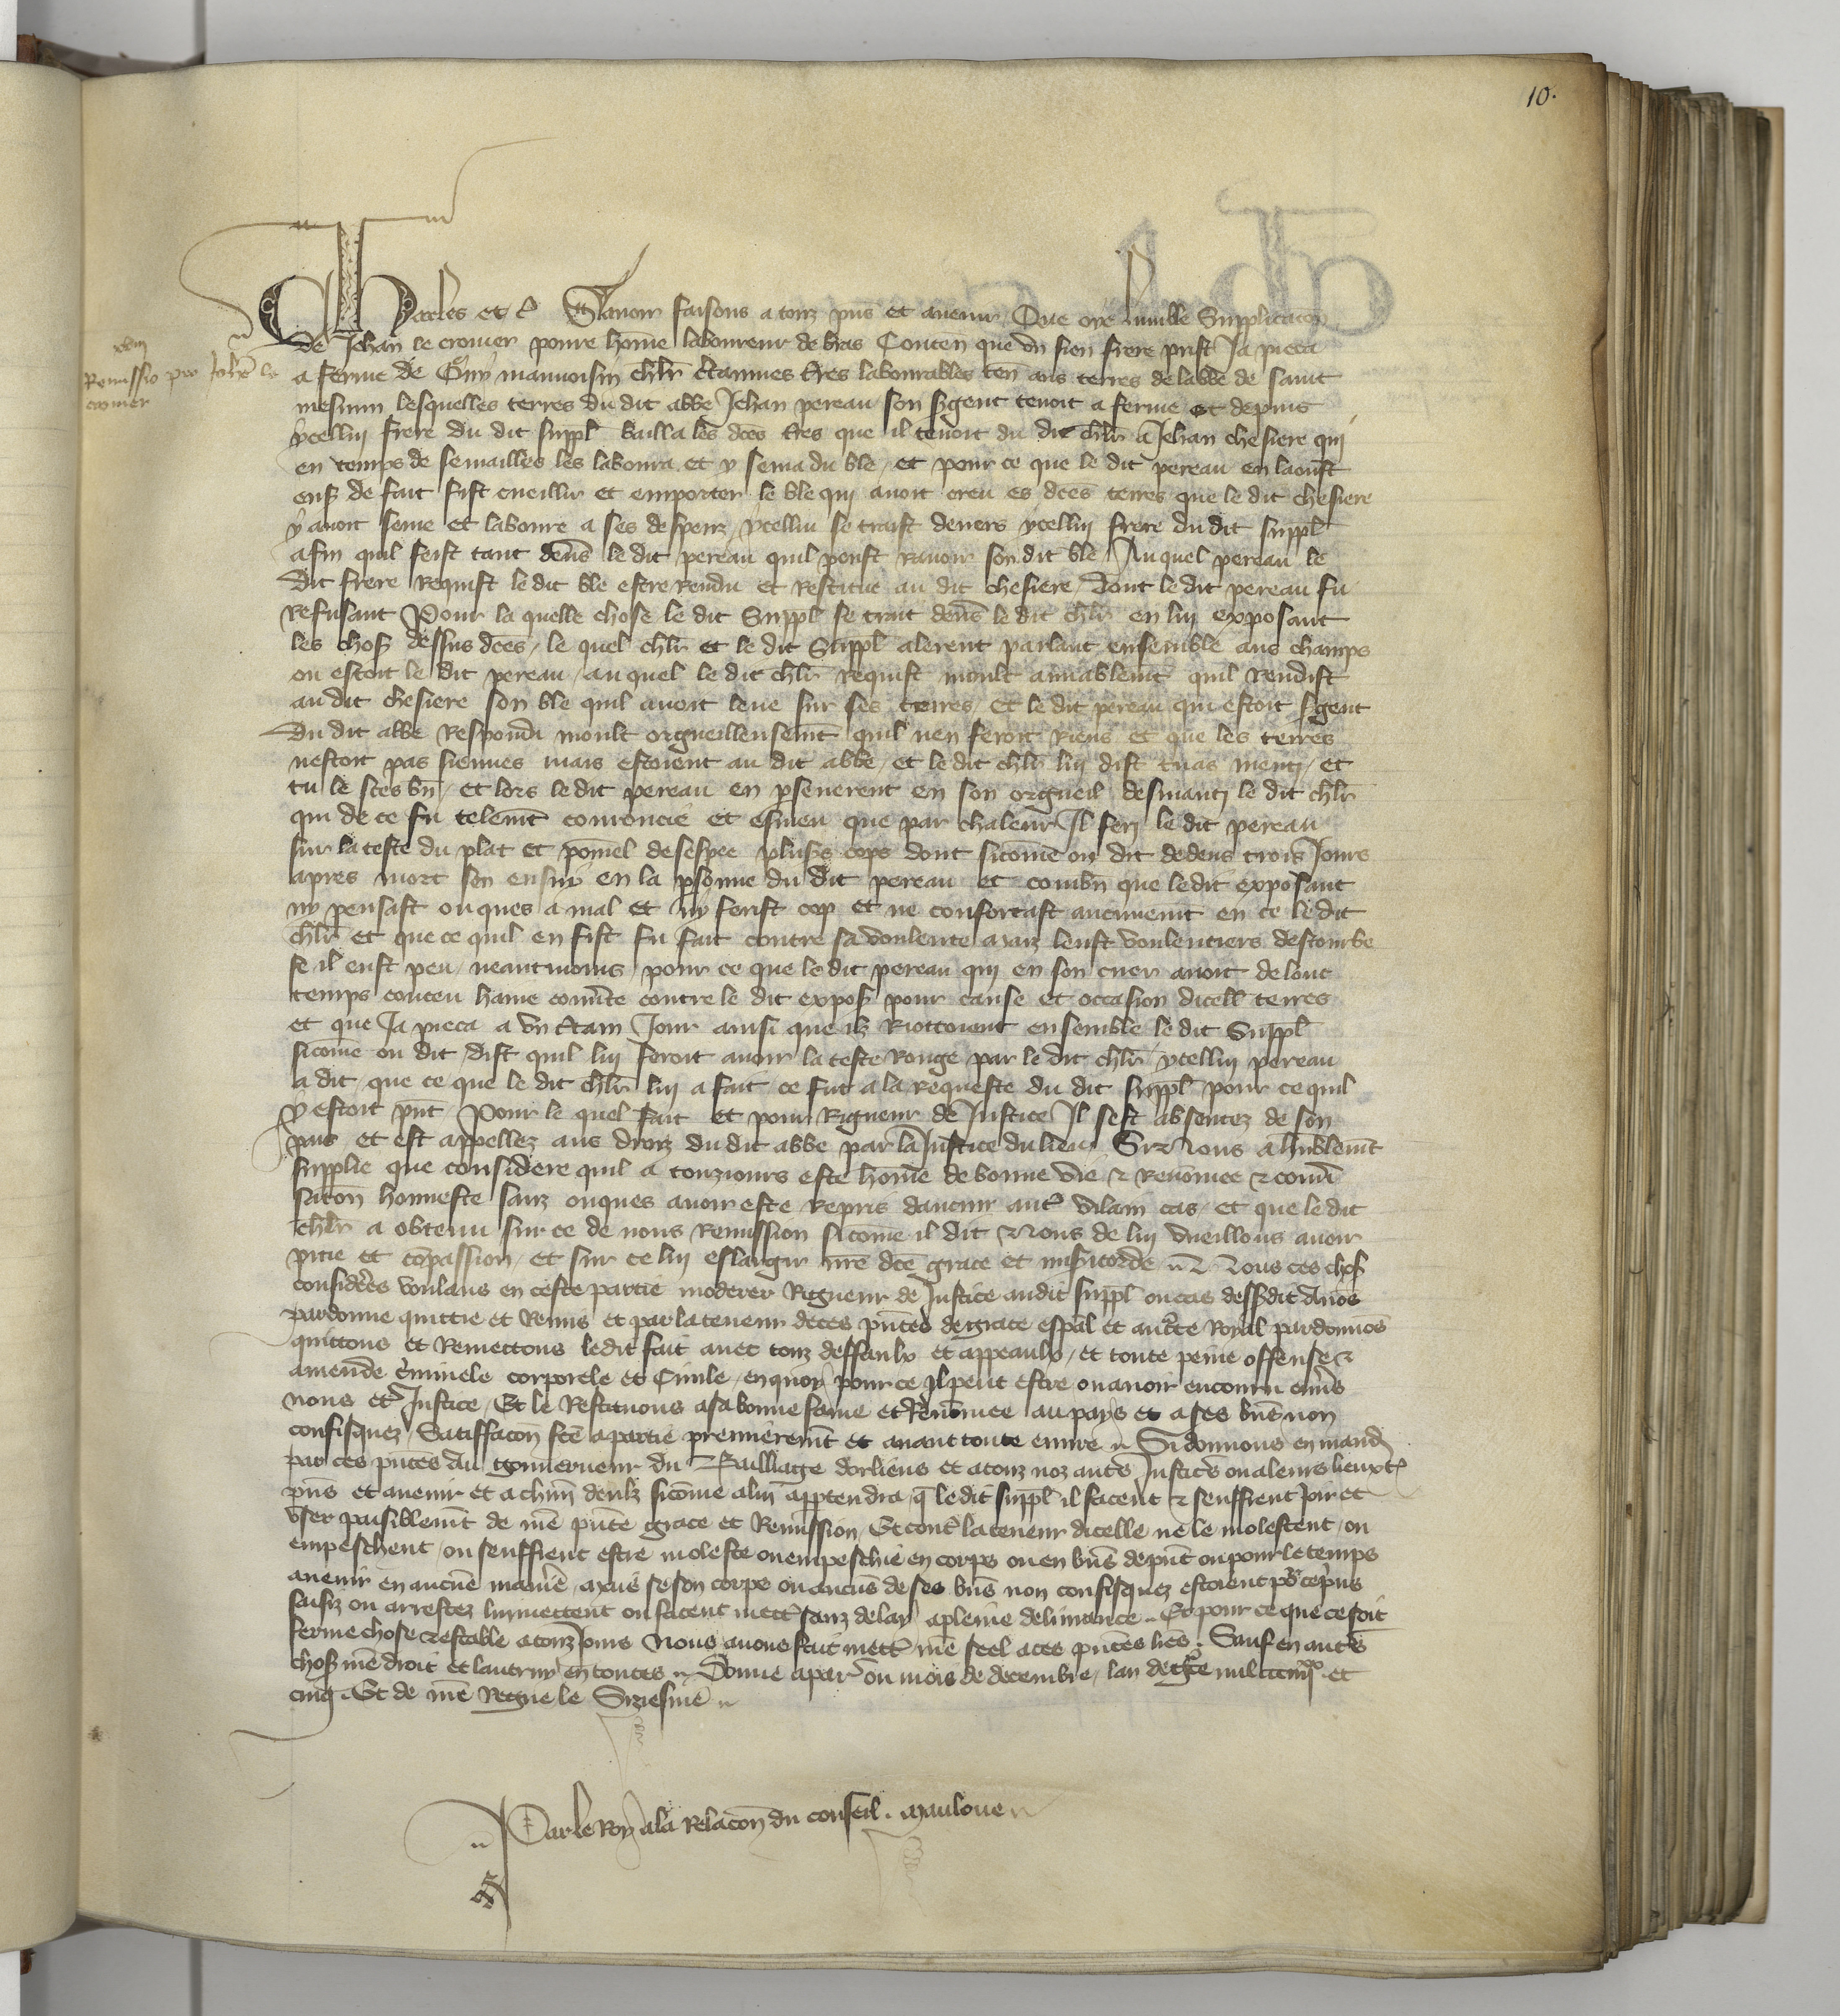 10.
Charles etc̃ Sauoir faisons a touz p̃ns et auenir Que oye humble Supplicacõn
de Jehan le cronier poure hõme laboureur de bras Conten que vn sien frere prist Ja pieca
xviij
Remissio pro Joh̃e le
cronier
a ferme de Guy mauuoisin ch̃lr c̃tainnes t̃res labourables ten̄ aus terres de labbe de saint
mesmin lesquelles terres du dit abbe Jehan pereau son s̃gent tenoit a ferme et depuis
ycelluy frere du dit suppl̃ bailla les dc̃es t̃res que il tenoit du dit ch̃lr a Jehan chesiere qui
en temps de semailles les laboura et y sema du ble / et pour ce que le dit pereau en laoust
ens̃ de fait fist cueillir et emporter le ble qui auoit creu es dc̃es terres que le dit chesiere
y auoit seme et laboure a ses despenz ycelluy se traist deuers ycelluy frere du dit suppl̃
afin quil feist tant deũs le dit pereau quil peust rauoir son dit ble / Au quel pereau le
dit frere Requist le dit ble estre Rendu et Restitue au dit chesiere / dont le dit pereau fu
Refusant Pour la quelle chose le dit Suppl̃ se trait deũs le dit ch̃lr en luy exposant
les chos̃ dessus dc̃es / le quel ch̃lr et le dit Suppl̃ alerent parlant ensemble aus champs
ou estoit le dit pereau / au quel le dit ch̃lr Requist moult amiablem̃t quil Rendist
au dit chesiere son ble quil auoit leue sur ses terres / et le dit pereau qui estoit s̃gent
du dit abbe Respondi moult orgueilleusem̃t quil nen feroit Riens et que les terres
nestoit pas siennes mais estoient au dit abbe / et le dit ch̃lr luy dist tu as menty / et
tu le sces bñ / et lors le dit pereau en p̃seuerent en son orgueil desmanty le dit ch̃lr
qui de ce fu telem̃t courroucie et esmeu que par chaleur Il fery le dit pereau
sur la teste du plat et pomel despee plus̃s cops dont sicõme on dit dedens trois Jours
apres mort sen ensuy en la p̃sonne du dit pereau et combñ que le dit exposant
ny pensast onques a mal et ny ferist cop et ne confortast aucunem̃t en ce le dit
ch̃lr et que ce quil en fist fu fait contre sa voulente maiz leust voulentiers destourbe
se il eust peu / neantmoins pour ce que le dit pereau qui en son cuer auoit de lonc
temps conceu hainne couũte contre le dit expos̃ pour cause et occasion dicell̃ terres
et que Ja pieca a vn c̃tain Jour ainsi que ilz Riottoient ensemble le dit Suppl̃
sicõme on dit / dist quil luy feroit auoir la teste Rouge par le dit ch̃lr / ycelluy pereau
a dit que ce que le dit ch̃lr luy a fait ce fut a la requeste du dit suppl̃ pour ce quil
y estoit p̃nt Pour le quel fait et pour Rigueur de Justice Il sest absentez de son
pais et est appellez aus droiz du dit abbe par la Justice du lieu Si Nous a humblem̃t
supplie que considere quil a touziours este hom̃e de bonne vie & Renõmee & conũ
sacõn honneste sanz onques auoir este repris daucun aut̃ vilain cas / et que le dit
ch̃lr a obtenu sur ce de nous Remission sicõme il dit Nous de luy vueillons auoir
pitie et cõpassion / et sur ce luy eslargir nr̃e dc̃e grace et mis̃icorde Nous ces chos̃
considerees voulans en ceste partie moderer Rigueur de Justice au dit suppl̃ ou cas dessusdit Auõs
pardonne quittie et Remis et par la teneur de ces p̃ntes de grace esp̃al et auct̃te Royal pardonnõs
quittons et Remettons le dit fait auec touz deffaulx et appeaulx / et toute peine offense &
amende c̃iminele corporele et Ciuile / en quoy pour ce Il peut estre ou auoir encouru enũs
nous et Justice / Et le Restituons a sa bonne fame et Renõmee au pays et a ses bñs non
confisquez Satisfacõn fc̃e a partie premierem̃t et auant toute euure Si donnons en mand̃
par ces p̃ntes Au gouuerneur du Bailliage dorliens et a touz noz aut̃s Justic̃s ou a leurs lieuxt̃
p̃ns et auenir et a chũn deulx sicõme a luy app̃tendra / q̃ le dit suppl̃ il facent & seuffrent Joir et
vser paisiblem̃t de nr̃e p̃nte grace et Remission / Et cont̃ la teneur dicelle ne le molestent / ou
empeschent / ou seuffrent estre moleste ou empeschie en corps ou en bñs de p̃nt ou pour le temps
auenir en aucũne maniere / maiz se son corps ou aucũs de ses bñs non confisquez estoient pour ce p̃ns
saisiz ou arrestez luy mettent ou facent mett̃ sanz delay a pleine deliurance Et pour ce que ce soit
ferme chose & estable a touz Jours Nous auons fait mett̃ nr̃e seel a ces p̃ntes lr̃es . Sauf en aut̃s
chos̃ nr̃e droit et lautruy en toutes Donne a par̃ ou mois de decembre / lan de g̃ce mil ccc iiijxx et
cinq . Et de nr̃e Regne le Siziesme
Par le Roy a la Relacõn du conseil . Mauloue